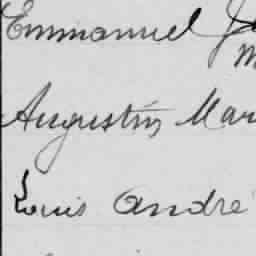 Emmanuel
Augustin Mar
Louis André